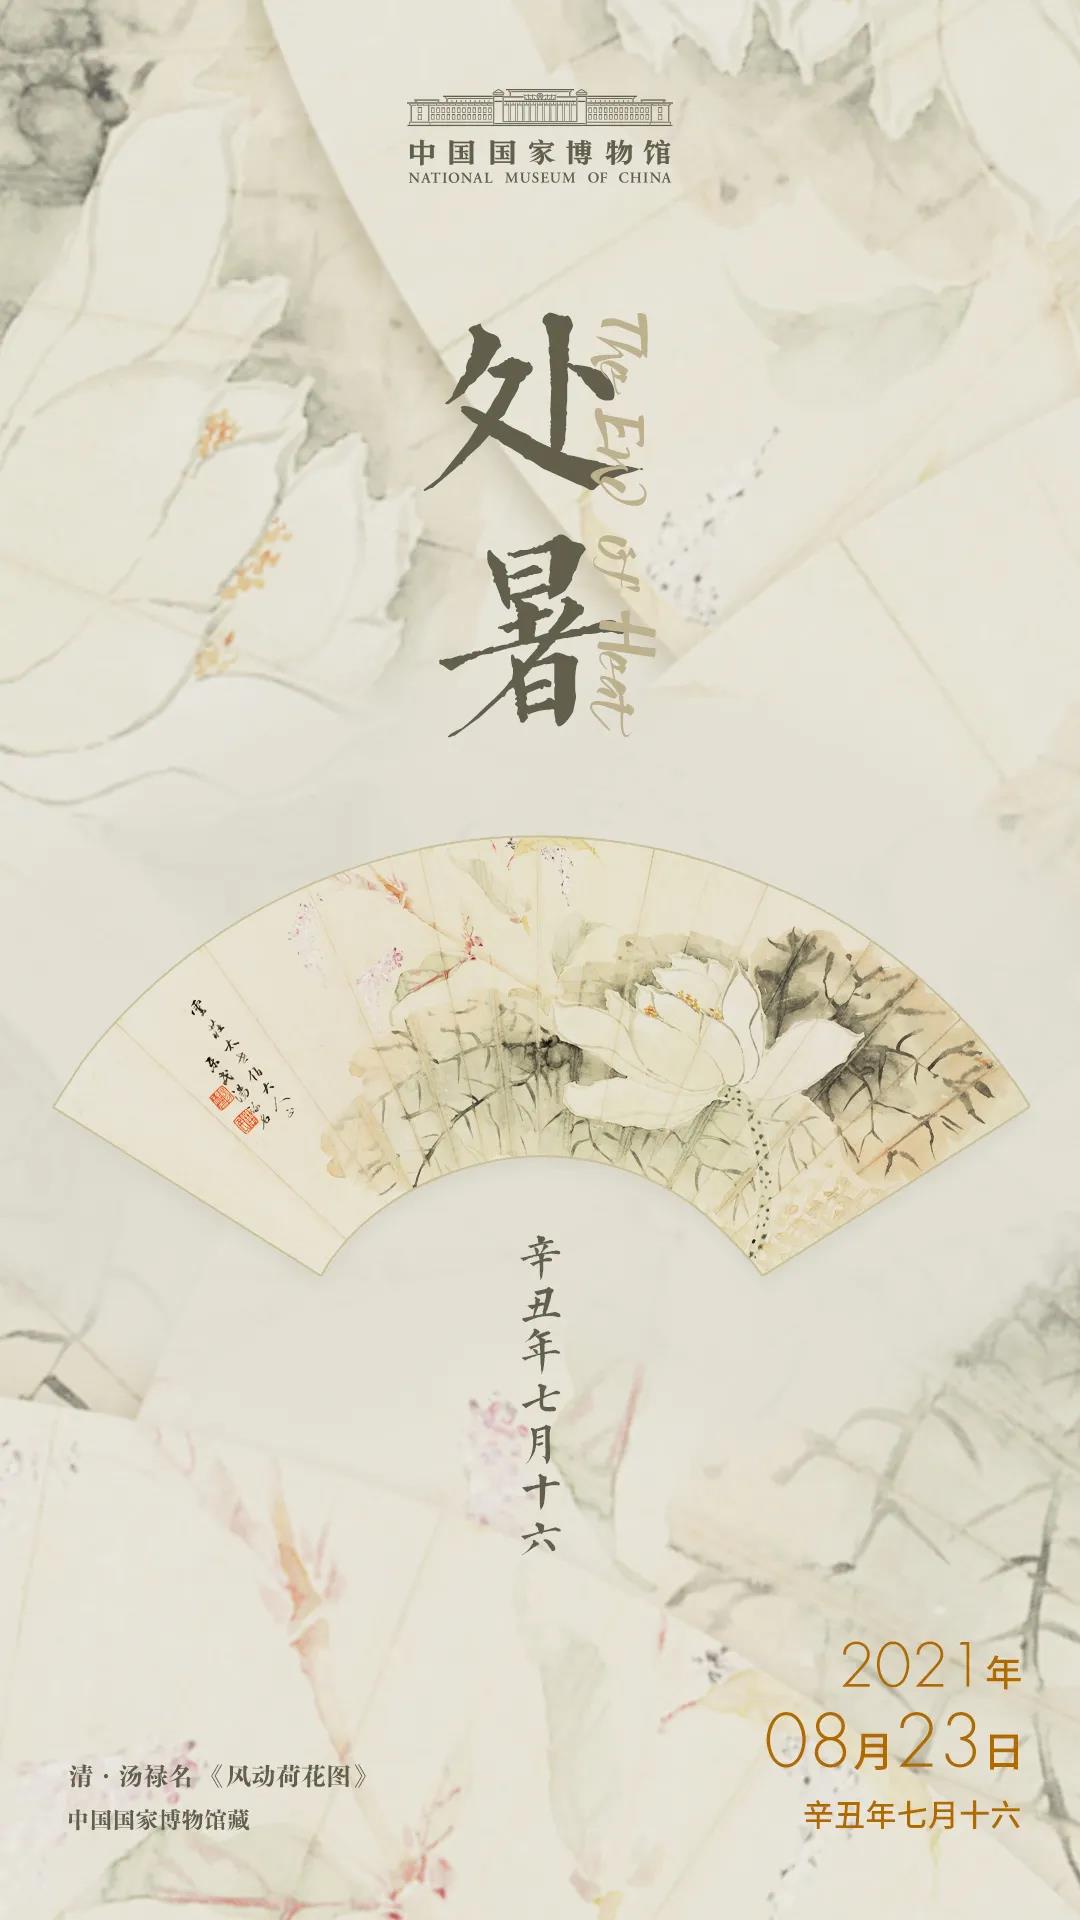 中国国家博物馆
NATIONAL MUSEUM OF CHINA
处暑
The End of Heat
辛丑年七月十六
2021年
08月23日
辛丑年七月十六
清·汤禄名《风动荷花图》
中国国家博物馆藏